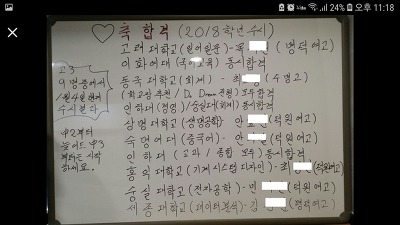 24% 오후 11:18
♡ 축 합격 (2018학년 수시)
고려대학교 (언어 - 곽 (명덕여고)
이화여대 (국어교육) 동시합격
동국대학교 (회계) - 최 (수명고)
(학교장 추천 / Do Dream 전형) 모두합격
인하대 (경영) / 숭실대 (회계) 동시합격
상명대학교 (생명공학) - 안 (덕원여고)
숙명여대 (중국어) - 안 (덕원여고)
인하대 ( 교과 / 종합 모두 ) 동시합격
홍익대학교 (기계시스템디자인) - 최 (덕원여고)
숭실대학교 (전자공학) - 변 (덕원여고)
세종대학교 (데이터분석) - 김 (명덕여고)
고3
9명중에서
1월4일 현재
수시분다
中2부터
늦어도 中3
부터는 시작
하세요.